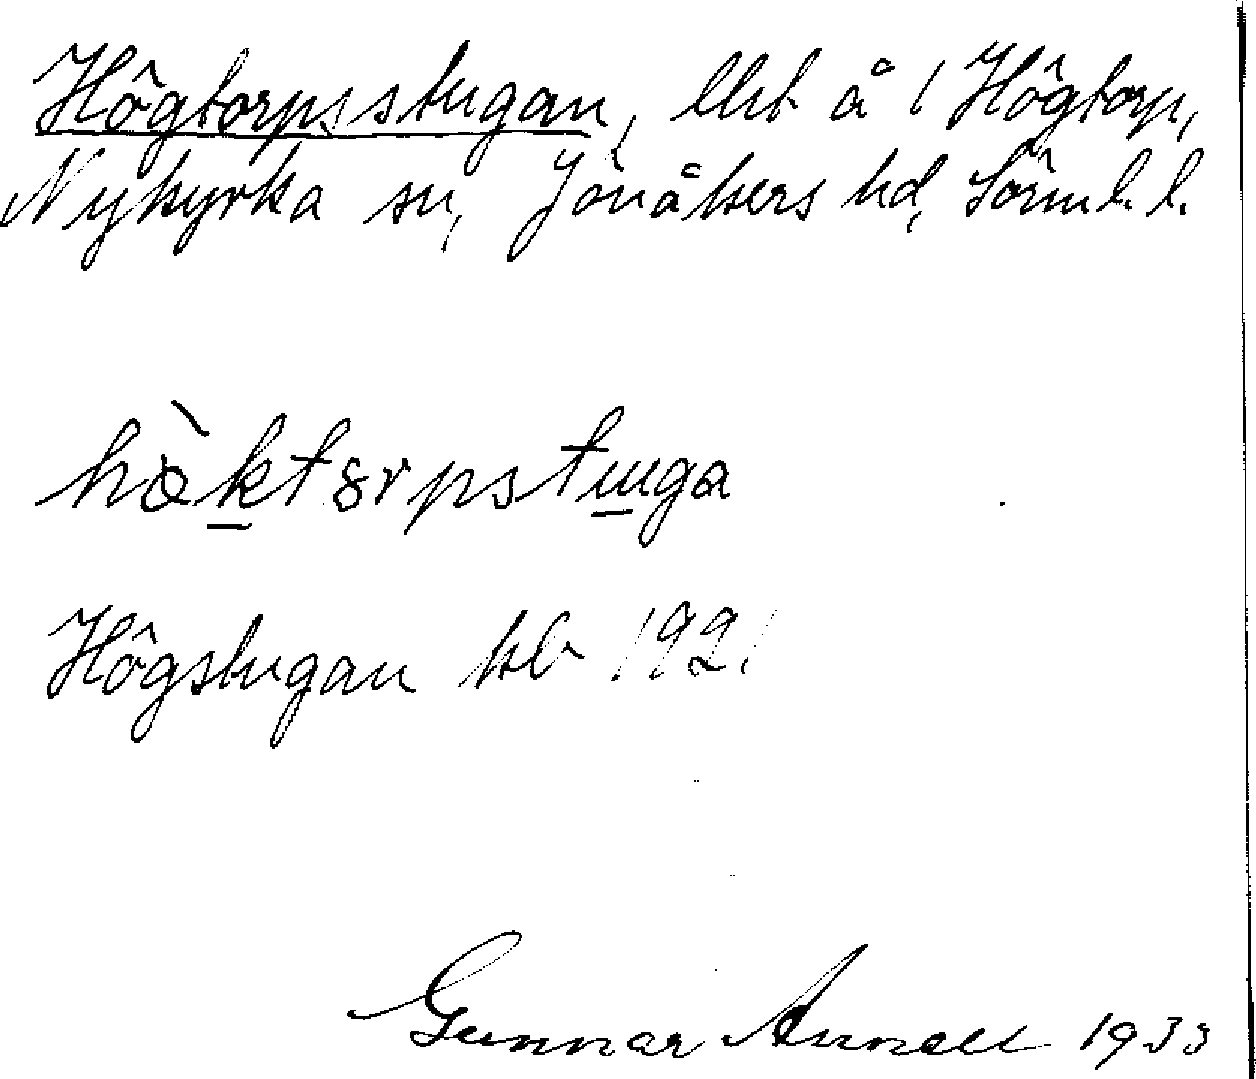 Högtorpsstugan, lht å 1 Högtorp,
Nykyrka sn, Jönåkers hd, Sörml. l.
hö̀ktɵrpstɯga
Högstugan kb 1921
Gunnar Annell 1933